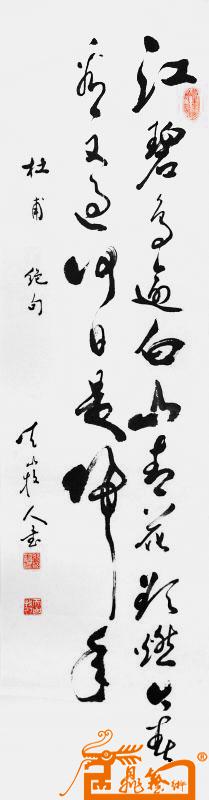 江碧鸟逾白山青花欲燃今春
看又过何日是归年
杜甫 绝句
山牧人书